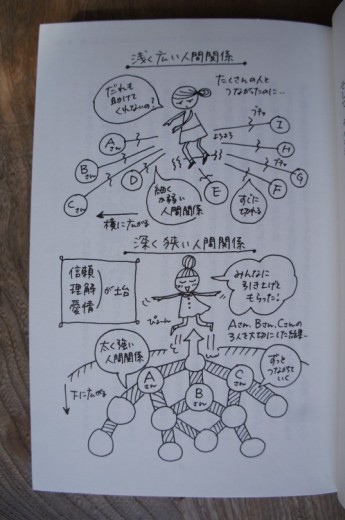 浅く広い人間関係
だれも
助けて
くれないの?
たくさんの人と
つながったのに…
ブチッ
I
H
ブチッ
G
F
E
D
Aさん
Bさん
Cさん
よろよろ
細く
か弱い
人間関係
すぐに
切れる
横に広がる
深く狭い人間関係
信頼
理解
愛情
が土台
みんなに
引き上げて
もらった!
ぴょーん
Aさん、Bさん、Cさんの
3人を大切にした結果…
太く強い
人間関係
Aさん
Bさん
Cさん
ずっと
つながって
いく
下に広がる